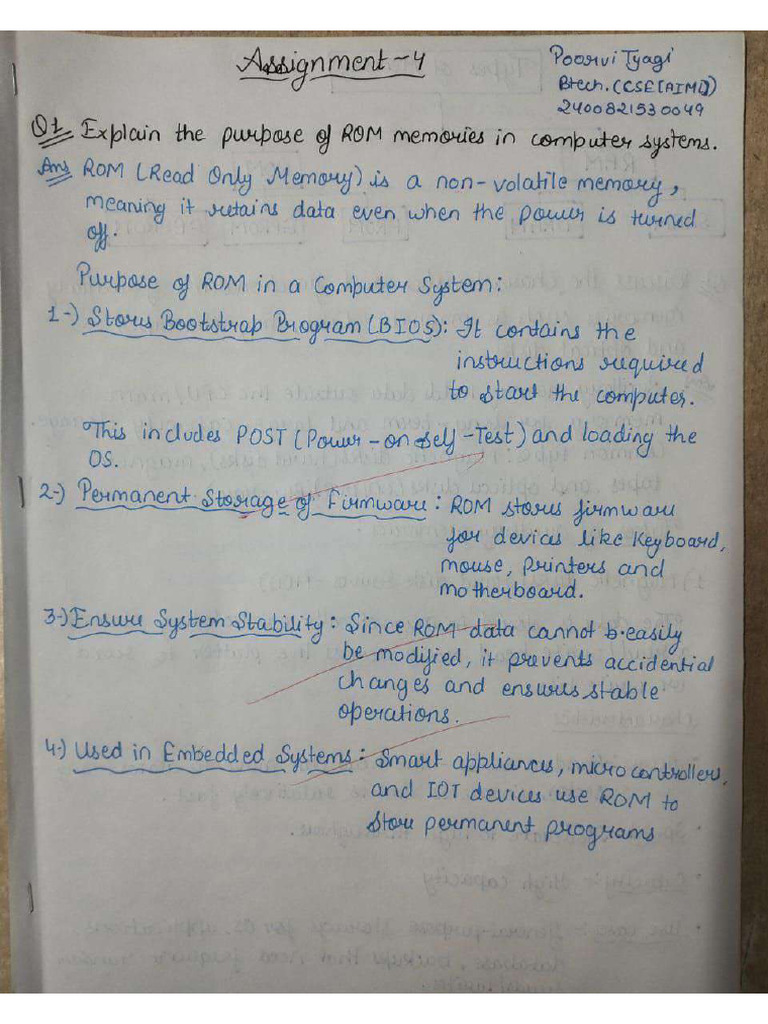 Assignment-4
Poorvi Tyagi
Btech. (CSE[AIML])
2400821530049
Q1 Explain the purpose of ROM memories in computer systems.
Ans ROM (Read Only Memory) is a non-volatile memory,
meaning it retains data even when the power is turned
off.
Purpose of ROM in a Computer System:
1-) Stores Bootstrap Program (BIOS): It contains the
instructions required
to start the computer.
This includes POST (Power-on Self-Test) and loading the
OS.
2-) Permanent Storage of Firmware: ROM stores firmware
for devices like Keyboard,
mouse, printers and
motherboard.
3-) Ensure System Stability: Since ROM data cannot b.easily
be modified, it prevents accidential
changes and ensures stable
operations.
4-) Used in Embedded Systems: Smart appliances, microcontrollers,
and IOT devices use ROM to
store permanent programs